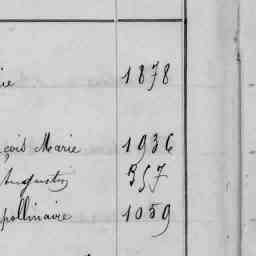 ie 1878
çois Marie 1936
Augustin 357
pollinaire 1059